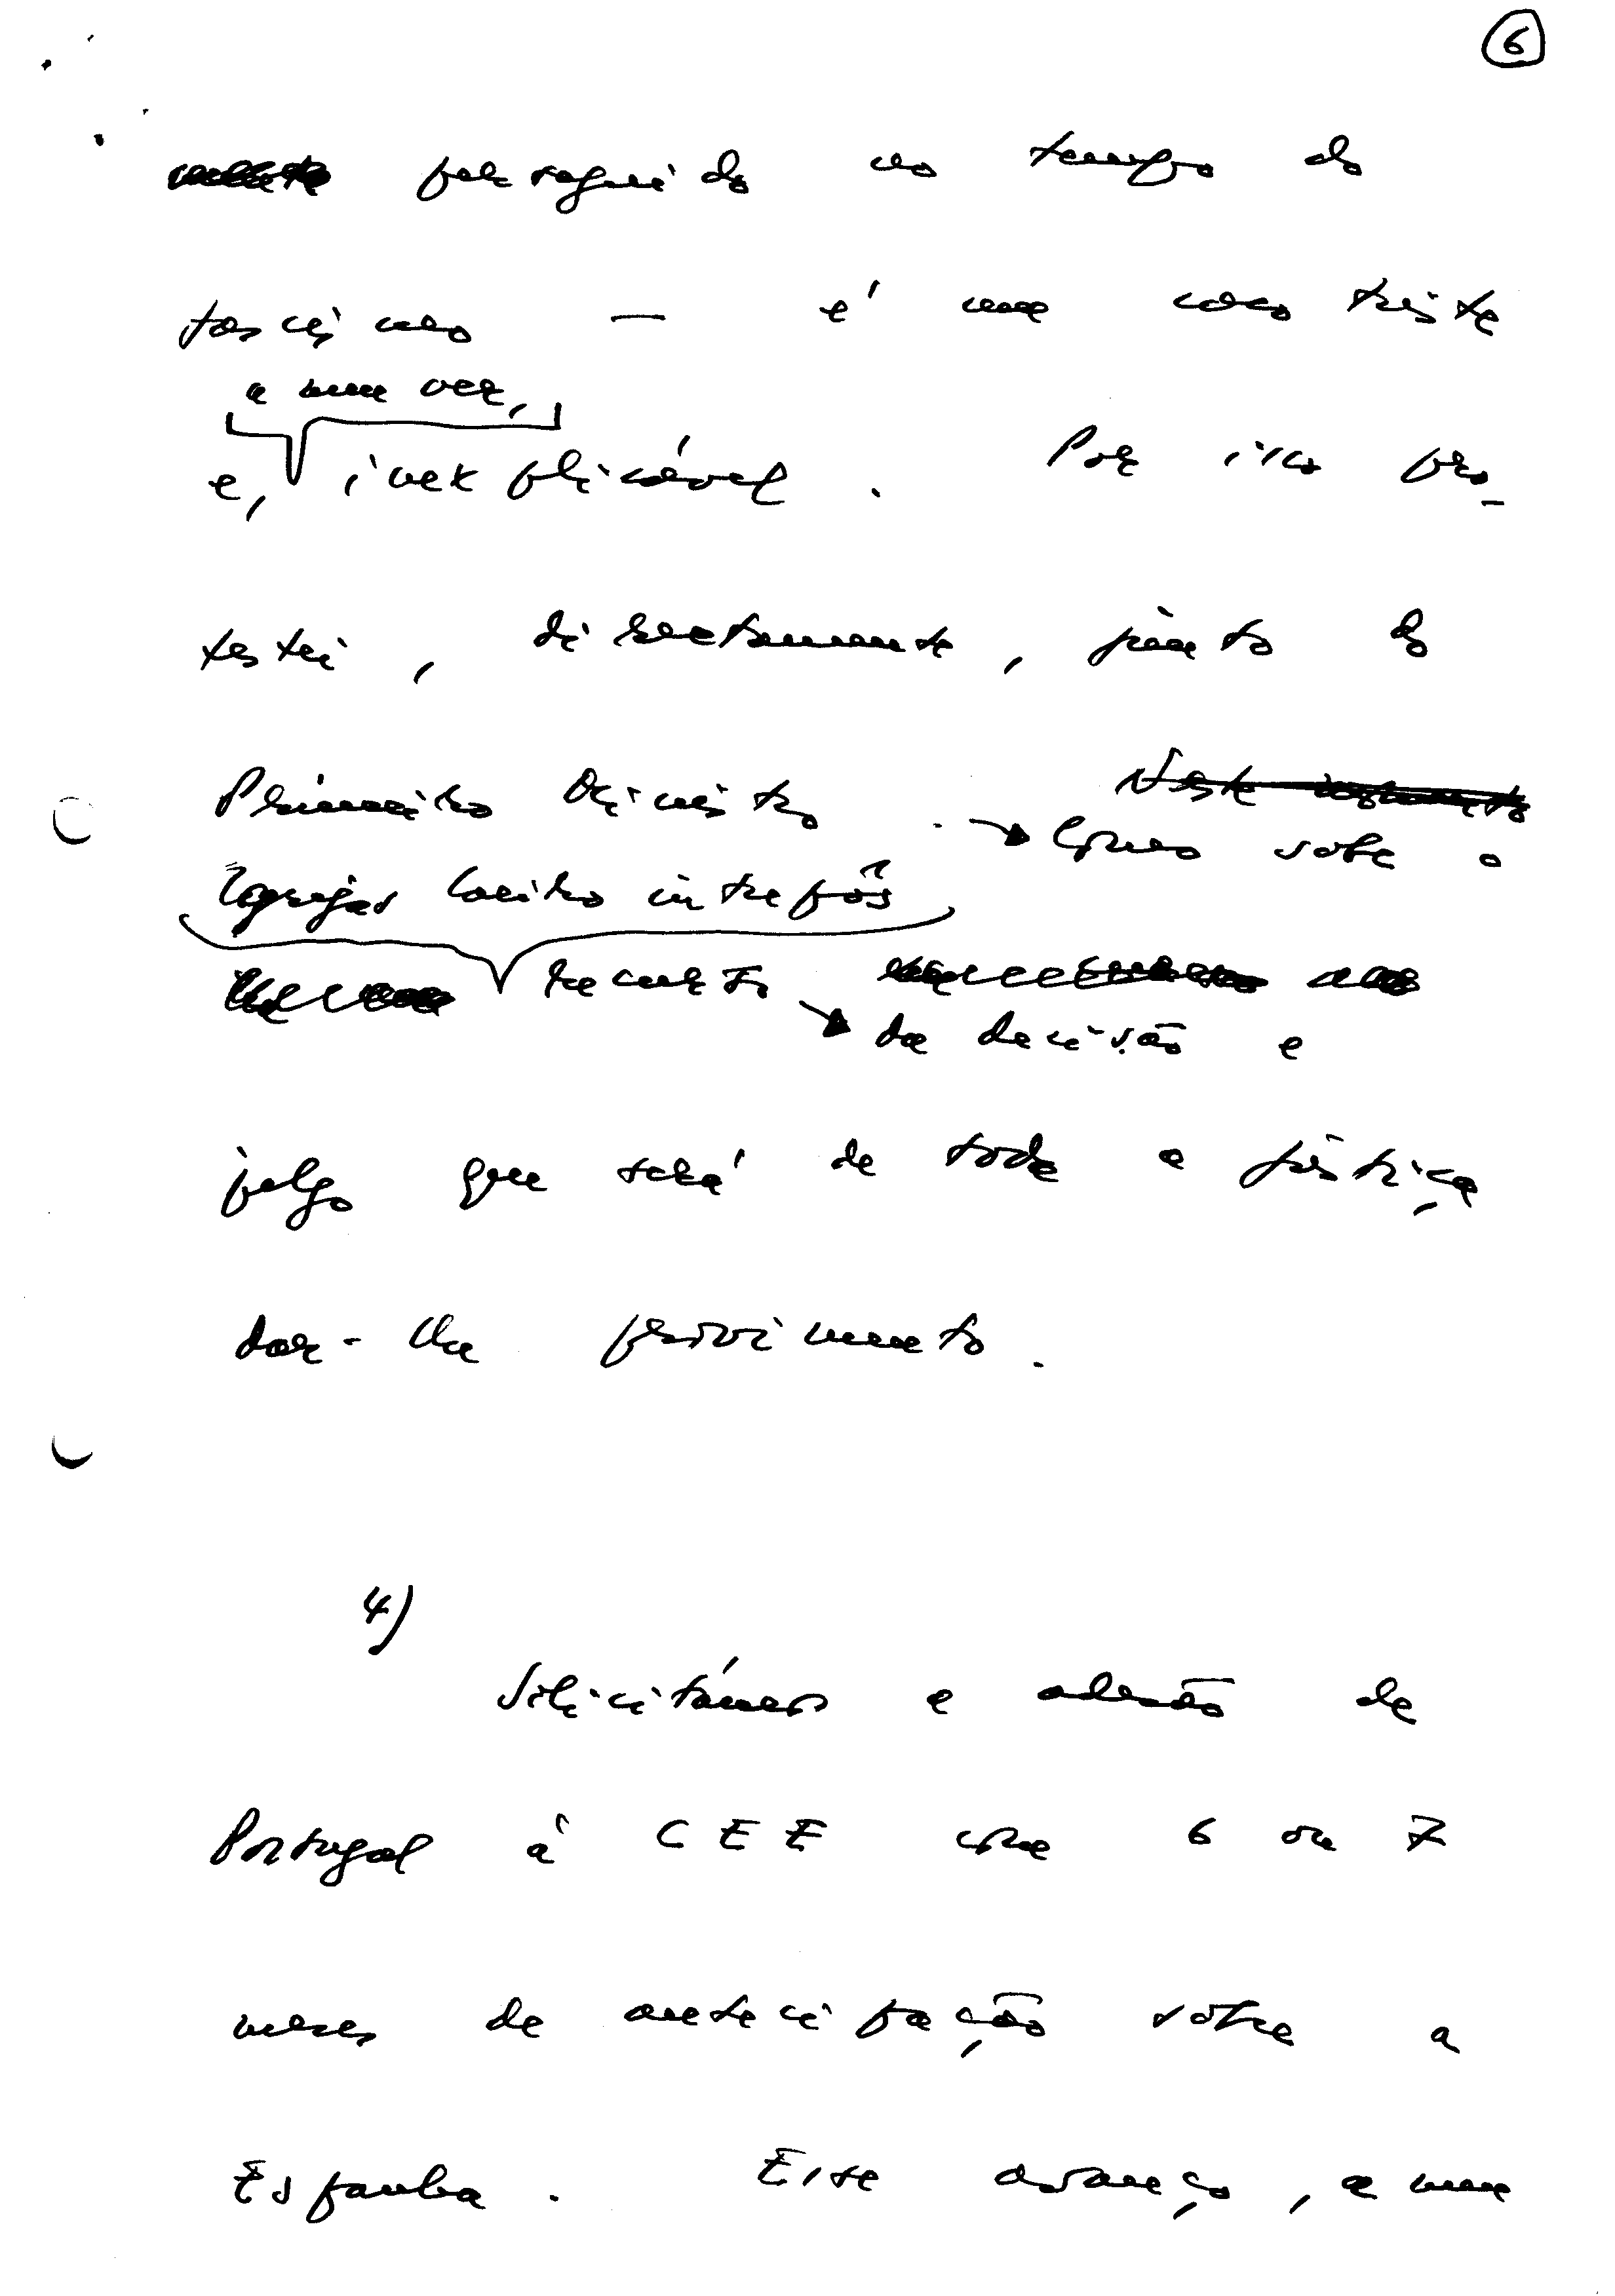 6
perseguido no tempo do
fascismo — é uma coisa triste
a meu ver,
e, inexplicável. Por isso pro-
testei, directamente, junto do
Primeiro Ministro. Neste
Como sabe o
Igrejas Caeiro interpôs
recurso
da decisão e
julgo que será de toda a justiça
dar-lhe provimento.
4)
Solicitámos a adesão de
Portugal à CEE com 6 ou 7
meses de antecipação sobre a
Espanha. Esse avanço, a meu